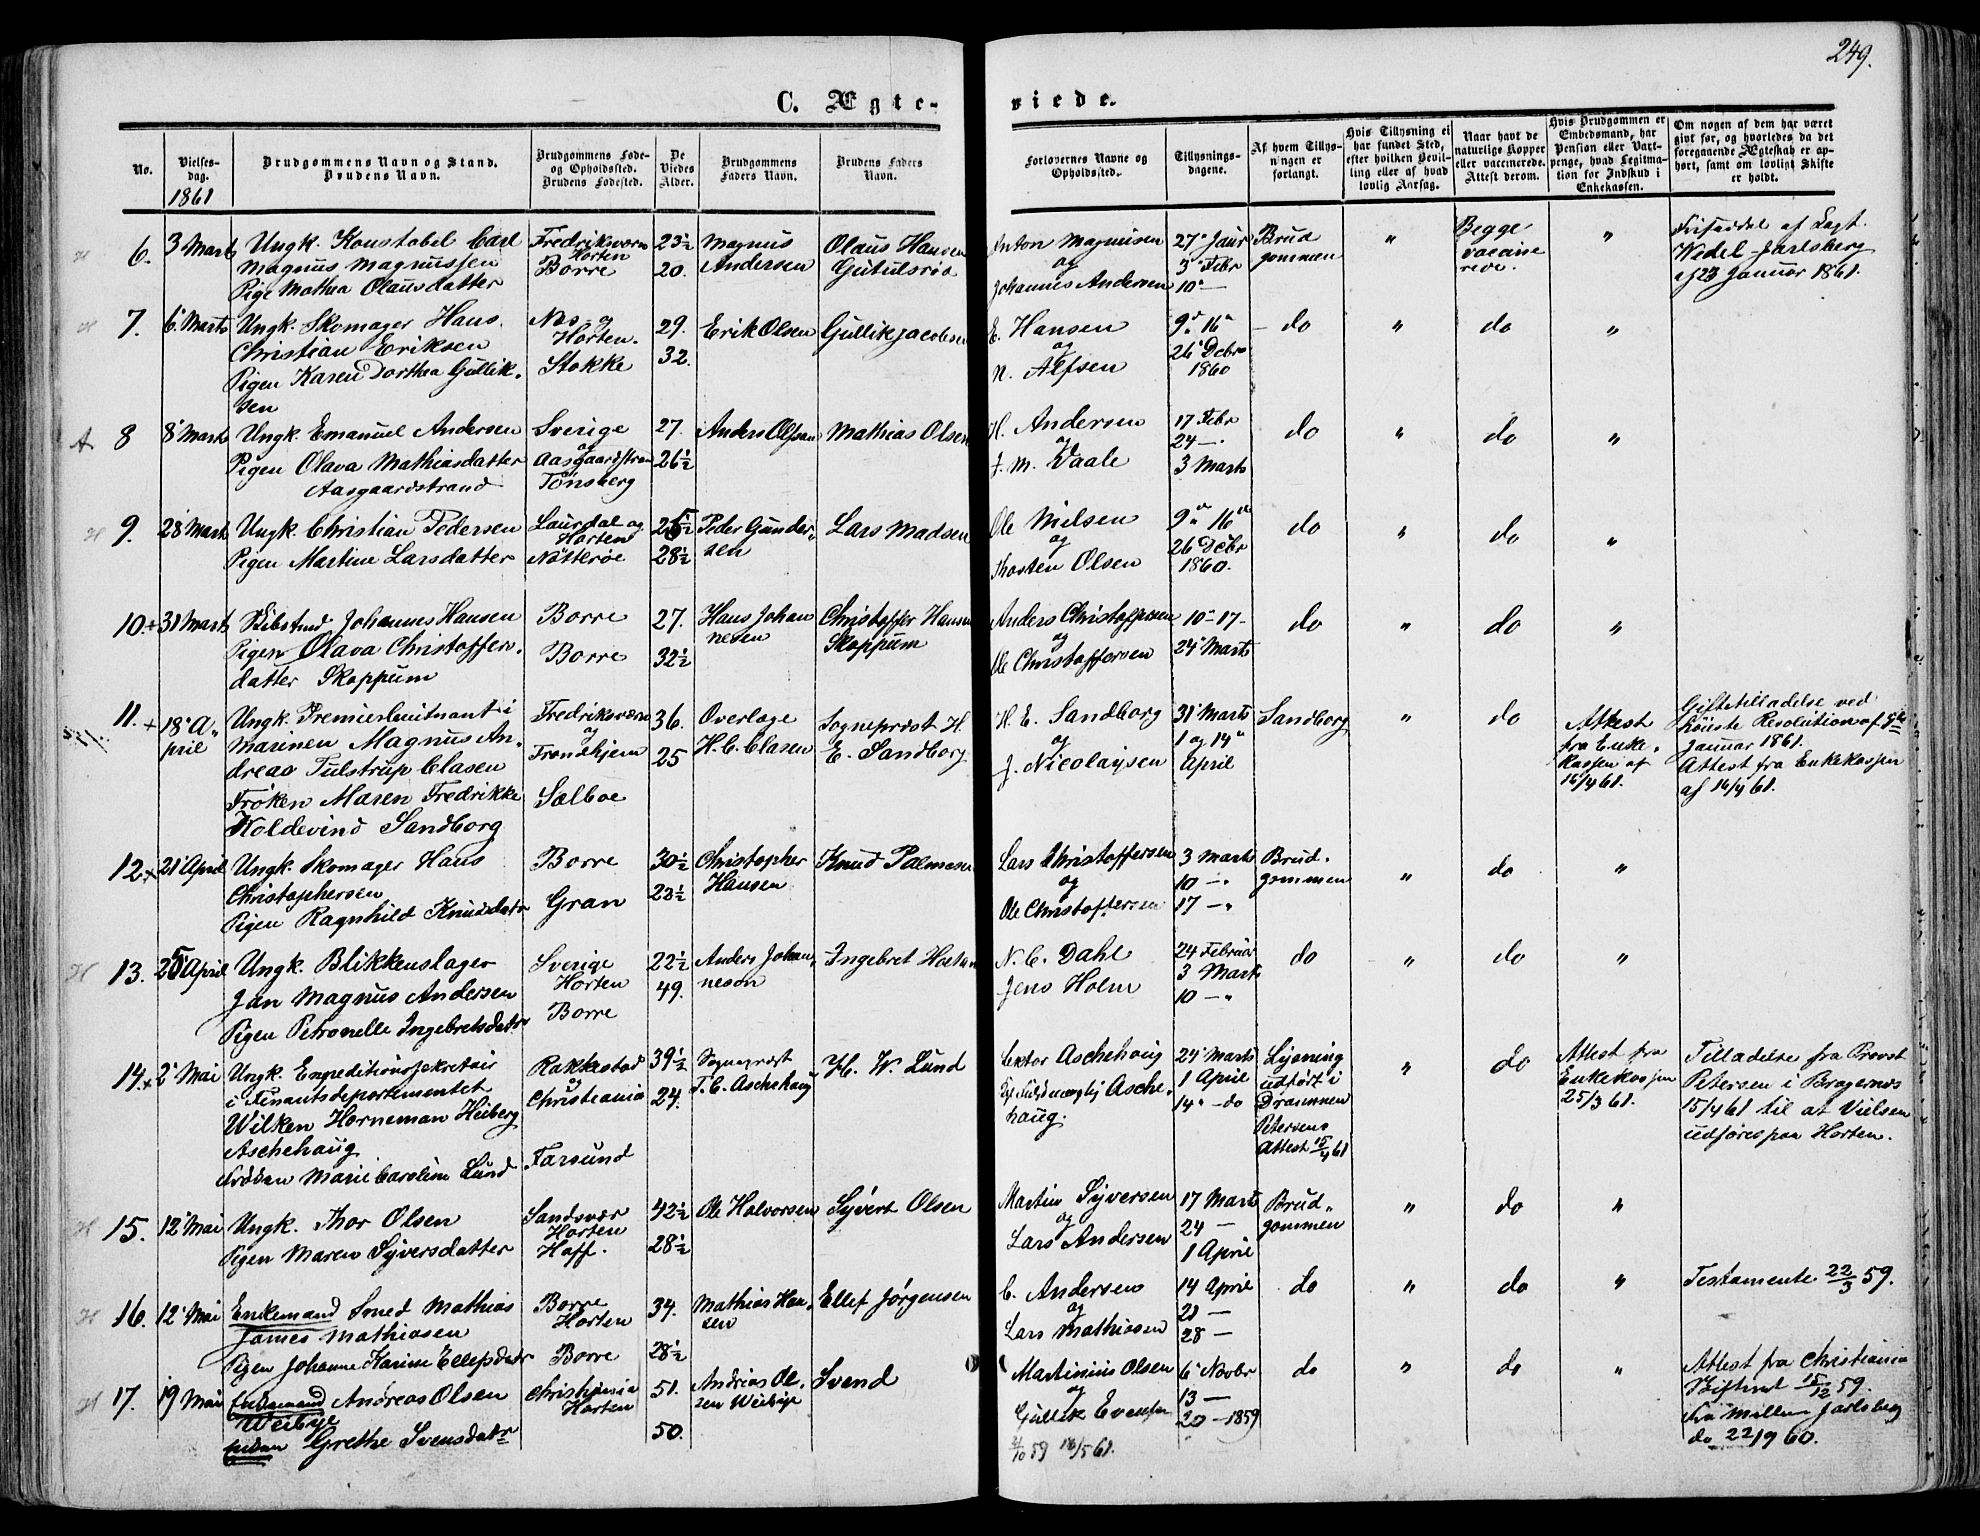 249.
C. Ægte-
viede.
No.
Vielses-
dag.
1861
Brudgommens Navn og Stand.
Brudens Navn.
Brudgommens Føde-
og Opholdssted.
Brudens Fødested.
De
Viedes
Alder.
Brudgommens
Faders Navn.
Brudens Faders
Navn.
Forlovernes Navne og
Opholdssted.
Tillysnings-
dagene.
Af hvem Tillys-
ningen er
forlangt.
Hvis Tillysning ei
har fundet Sted,
efter hvilken Bevil-
ling eller af hvad
lovlig Aarsag.
Naar havt de
naturlige Kopper
eller vaccinerede.
Attest derom.
Hvis Brudgommen er
Embedsmand, har
Pension eller Vart-
penge, hvad Legitma-
tion for Indskud i
Enkekassen.
Om nogen af dem har været
gift før, og hvorledes da det
foregaaende Ægteskab er op-
hørt, samt om lovligt Skifte
er holdt.
6.
3 Marts
Ungk. Konstabel Carl
Magnus Magnussen
Pige Mathea Olausdatter
Fredriksværn
Horten
Borre
23½
20.
Magnus
Andersen
Olaus Hansen
Gutulsrød
Anton Magnusen
og
Johannes Andersen
27 Januar
3 Febr
10 —
Brud
gommen
"
Begge
vaccine
rede.
"
Wedel Jarlsberg
af 23 Januar 1861.
7.
6 Marts
Ungk. Skomager Hans
Christian Eriksen
Pigen Karen Dorthea Gullik-
sen
Næs og
Horten.
Stokke
29.
32.
Erik Olsen
Gullik Jacobsen
E. Hansen
og
N. Alfsen
9de 16de
26 Debr
1860
do
"
do
"
A
8
8 Marts
Ungk. Emanuel Andersen
Pigen Olava Mathiasdatter
Aasgaardstrand
Sverige
og
Aasgaardstran
Tönsberg
27.
26½
Anders Olsson
Mathias Olsen
H. Andersen
og
J. M. Vaale
17 Febr
24 —
3 Marts
do
"
do
"
9.
28 Marts
Ungk. Christian Pedersen
Pigen Martine Larsdatter
Laurdal og
Horten
Nötteröe
25½
28½
Peder Gunder-
sen
Lars Madsen
Ole Nielsen
og
Thosten Olsen
9de 16de
26 Debr
1860.
do
"
do
"
10 +
31 Marts
Johannes Hansen
Pigen Olava Christoffer-
datter Skoppum
Borre
Borre
27.
32½
Hans Johan
nesen
Christoffer Hansen
Skoppum
Anders Christoffersen
og
Ole Christoffersen
10 - 17 -
24 Marts
do
"
do
"
11. +
18 A-
pril
Ungk. Premierlieutnant i
Marinen Magnus An-
dreas Tulstrup Clasen
Fröken Maren Fredrikke
Koldevind Sandborg
Fredriksværn
og
Trondhjem
Sælboe
36.
25
Overlæge
H. C. Clasen
Sognepræst H.
E. Sandborg
H. E. Sandborg
og
J. Nicolaysen
31 Marts
1 og 14
April
Sandborg
"
do
Attest
fra Enke-
kassen af
16/4 61.
Giftetilladelse ved
höieste Resolution af 9de
Januar 1861.
Attest fra Enkekassen
af 16/4 61.
12 +
21 April
Ungk. Skomager Hans
Christophersen
Pigen Ragnhild Knudsdatr
Borre
Gran
30½
23½
Christopher
Hansen
Knud Palmesen
Lars Christoffersen
og
Ole Christoffersen
3 Marts
10 —
17 —
Brud-
gommen
"
do
"
13.
25 April
Ungk. Blikkenslager
Jan Magnus Andersen
Pigen Petronelle Ingebretsdatr
Sverige
Horten
Borre
22½
49.
Anders Johan-
neson
Ingebret Horten
N. C. Dahl
Jens Holm
24 Februar
3 Marts
10 —
do
"
do
"
14. +
2 Mai
Ungk. Expeditionssekretair
i Finantsdepartementet
Wilken Horneman Heiberg
Aschehoug
Fröken Marie Caroline Lund
Rakkestad
og
Christiania
Farsund
39½
24.
Sognepræst
T. C. Aschehoug
H. W. Lund
Lektor Aschehoug
Asche-
houg.
24 Marts
1 April
14 — do
Lysning
udført i
Drammen
Petersens
Attest 15/4 61
"
do
Attest fra
Enkekassen
25/3 61.
Tilladelse fra Provst
Petersen i Bragernæs
15/4 61 til at Vielsen
udføres paa Horten.
15.
12 Mai
Ungk. Thor Olsen
Pigen Maren Syversdatter
Sandsvær
Horten
Hoff.
42½
28½
Ole Halvorsen
Syvert Olsen
Martin Syversen
og
Lars Andersen
17 Marts
24 —
1 April
Brud-
gommen
"
do
"
16.
12 Mai
Enkemand Smed Mathias
James Mathiasen
Pigen Johanne Karine Ellefsdatr
Borre
Horten
Borre
34.
28½
Mathias Han-
sen
Ellef Jørgensen
C. Andersen
og
Lars Mathiasen
14 April
21 —
28 —
do
"
do
"
Testamente 22/3 59.
17.
19 Mai
Enkemand Andreas Olsen
Weibye
Enken Grethe Svensdatr
Christiania
Horten
51.
50.
Andreas Ol-
sen Weibye
Svend
Martinius Olsen
og
Gullik Evensen
59 18/5 61.
6 Novbr
13 —
20 — 1859
do
"
do
"
Attest fra Christiania
Skifteret 15/12 59.
Jarlsberg
do 22/9 60.